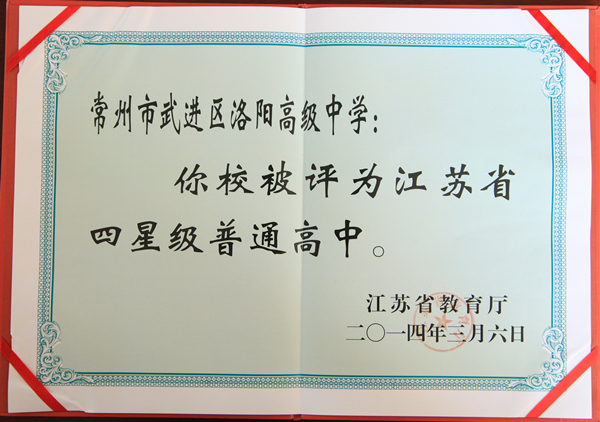 常州市武进区洛阳高级中学：
你校被评为江苏省
四星级普通高中。
江苏省教育厅
二〇一四年三月六日